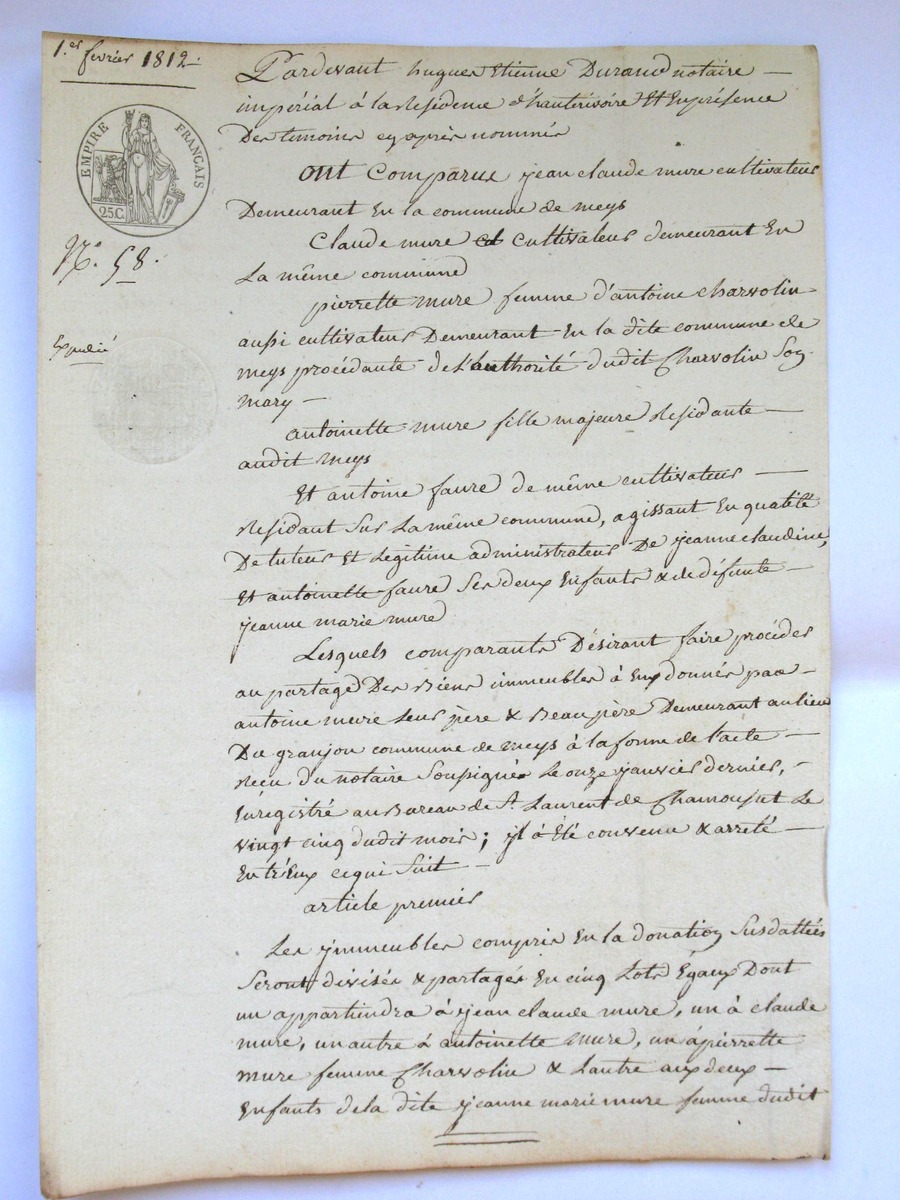 1.er fevrier 1812
EMPIRE FRANÇAIS
25 C.
N.o 58.
Expedié
Pardevant hugues Etienne Durand notaire
impérial à la Residence d'hauterivoire Et En présence
Des temoins cy après nommés
Ont comparus jean claude mure cultivateur
Demeurant En la commune de meys
Claude mure cultivateur demeurant En
La même commune
pierrette mure femme d'antoine charvolin
aussi cultivateur Demeurant En la dite commune de
meys procédante de L'authorité dudit Charvolin Son
mary
antoinette mure fille majeure Residante
audit meys
Et antoine faure de même cultivateur
Residant Sur La même commune, agissant En qualité
De tuteur Et Légitime administrateur De jeanne claudine,
Et antoinette faure Ses deux Enfants & de défunte
jeanne marie mure
Lesquels comparants Désirant faire procéder
au partage Des Biens immeubles à Eux donnés par
antoine mure Leur père & Beau père Demeurant au lieu
Du granjon commune de meys à la forme de l'acte
Recu du notaire Soussigné Le onze janvier dernier,
Enregistré au Bureau de St Laurent de Chamousset Le
vingt cinq dudit mois ; il à Eté convenu & arreté
Entr'Eux ce qui Suit
article premier
Les immeubles compris En la donation Susdattée
Seront divisés & partagés En cinq Lots Egaux Dont
un appartiendra à jean claude mure, un à claude
mure, un autre à antoinette mure, un à pierrette
mure femme Charvolin & L'autre aux deux
Enfants de la dite jeanne marie mure femme dudit